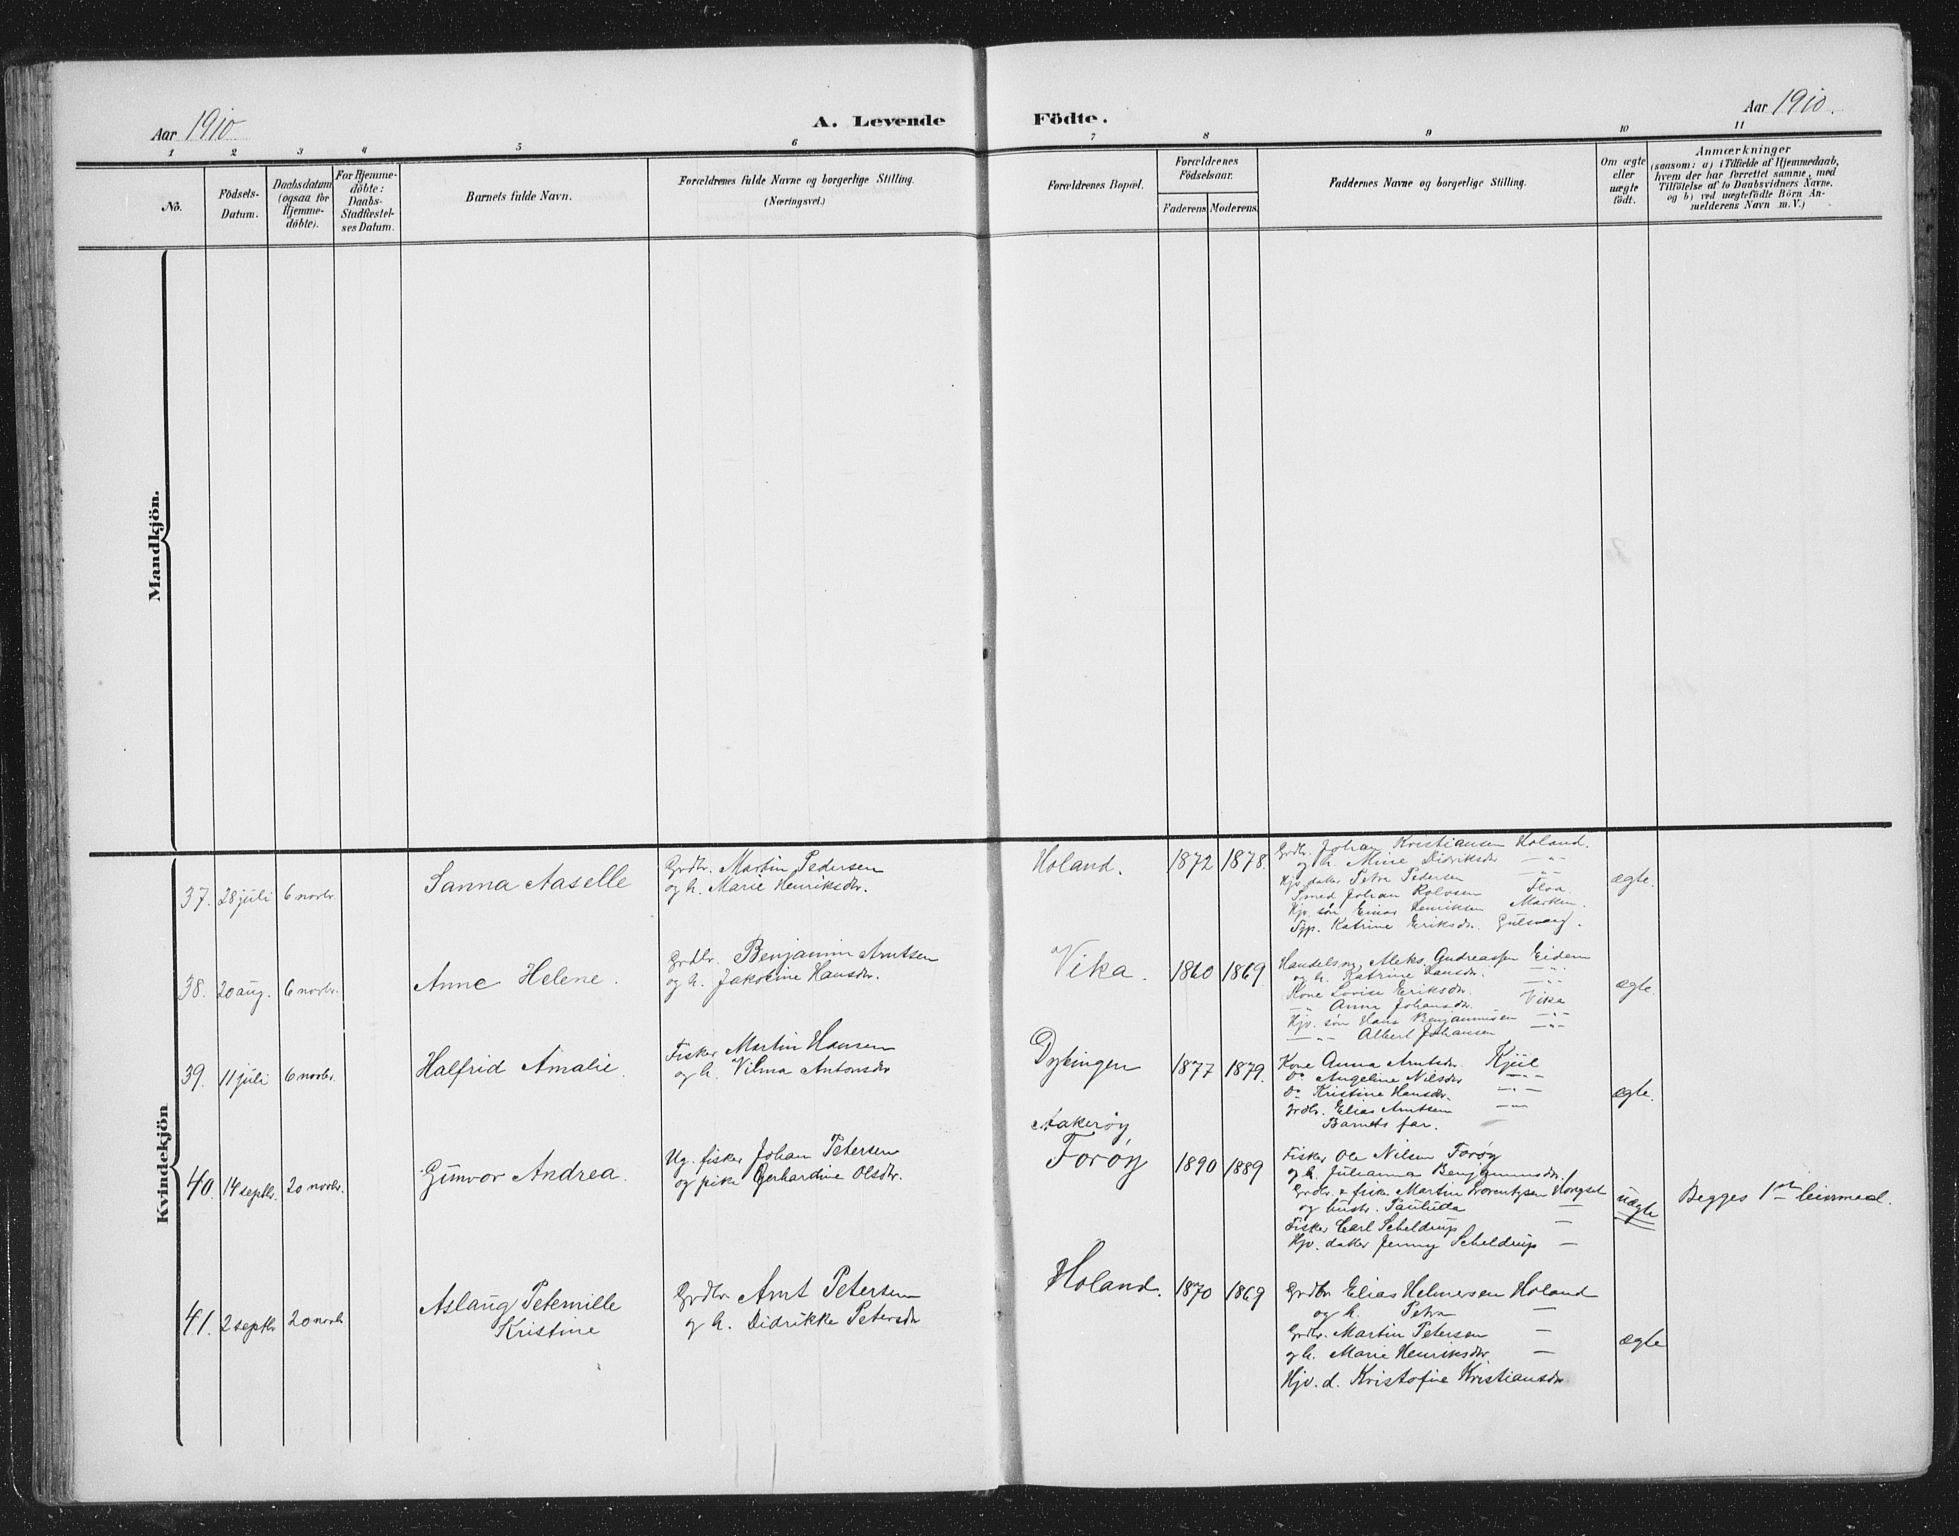 Aar 1910
A. Levende Födte.
Aar 1910.
1 2 3 4 5 6 7 8 9 10 11
No.
Födsels-Datum.
Daabsdatum (ogsaa for Hjemme-döbte).
For Hjemme-döbte: Daabs-Stadfæstel-ses Datum.
Barnets fulde Navn.
Forældrenes fulde Navne og borgerlige Stilling.
(Næringsvei.)
Forældrenes Bopæl.
Forældrenes Födselsaar.
Faderens Moderens.
Faddernes Navne og borgerlige Stilling.
Om ægte eller uægte födt.
Anmærkninger
(saasom: a) i Tilfælde af Hjemmedaab,
hvem der har forrettet samme, med
Tilföielse af to Daabsvidners Navne.
og b) ved uægtefödte Börn An-
melderens Navn m. V.)
Mandkjön.
Kvindekjön
37. 28 juli 6 novbr. Sanna Aaselle
Grdbr. Martin Pedersen
og h. Marie Henriksdr.
Holand. 1872 1878.
Grdbr. Johan Kristiansen Holand.
og h. Mine Didriksdr —"—
Hjv. dater Petra Pedersen —"—
Smed Johan Rolvsen Floa.
Hjv. søn Einar Henriksen Marken.
Tjp. Katrine Eriksdr. Gulsvaag.
ægte.
38. 20 aug. 6 novbr. Anne Helene.
Grdbr. Benjamin Arntsen
og h. Jakobine Hansdr.
Vika. 1860 1869.
Handelsm. Meks. Andreassen Eidem
og h. Katrine Hansdr. —"—
Kone Lovise Eriksdr.
—"— Anna Johansdr. Vika
Hjv. søn Hans Benjaminsen —"—
—"— Albert Johansen —"—
ægte.
39. 11 juli 6 novbr. Halfrid Amalie.
Fisker Martin Hansen
og h. Vilma Antonsdr
Dybingen 1877 1879.
Kone Anna Arntsdr. Kjül
Do Angeline Nilsdr —"—
Do Kristine Hansdr. —"—
Grdbr. Elias Arntsen —"—
Barnets far.
ægte.
40. 14 septbr. 20 novbr. Gunvor Andrea.
Ug. fisker Johan Petersen
og pike Gerhardine Olsdr.
Aakerøy
Forøy 1890 1889
Fisker Ole Nilsen Forøy
og h. Julianna Benjaminsdr.
Grdbr. & fisker Martin Lorentzen Hongset
og hustr. Paulida —
Fisker Carl Scheldrup —
Hjv. dater Jenny Scheldrup —
uægte
Begges 1ste leiermaal.
41. 2 septbr 20 novbr Aslaug Petemille
Kristine
Grdbr. Arnt Petersen
og h. Didrikke Petersdr
Holand. 1870 1869
Grdbr Elias Helmersen Holand
og h. Petra —
Grdbr. Martin Petersen —
og h. Marie Henriksdr —
Hjv. d. Kristofine Kristiansdr
ægte